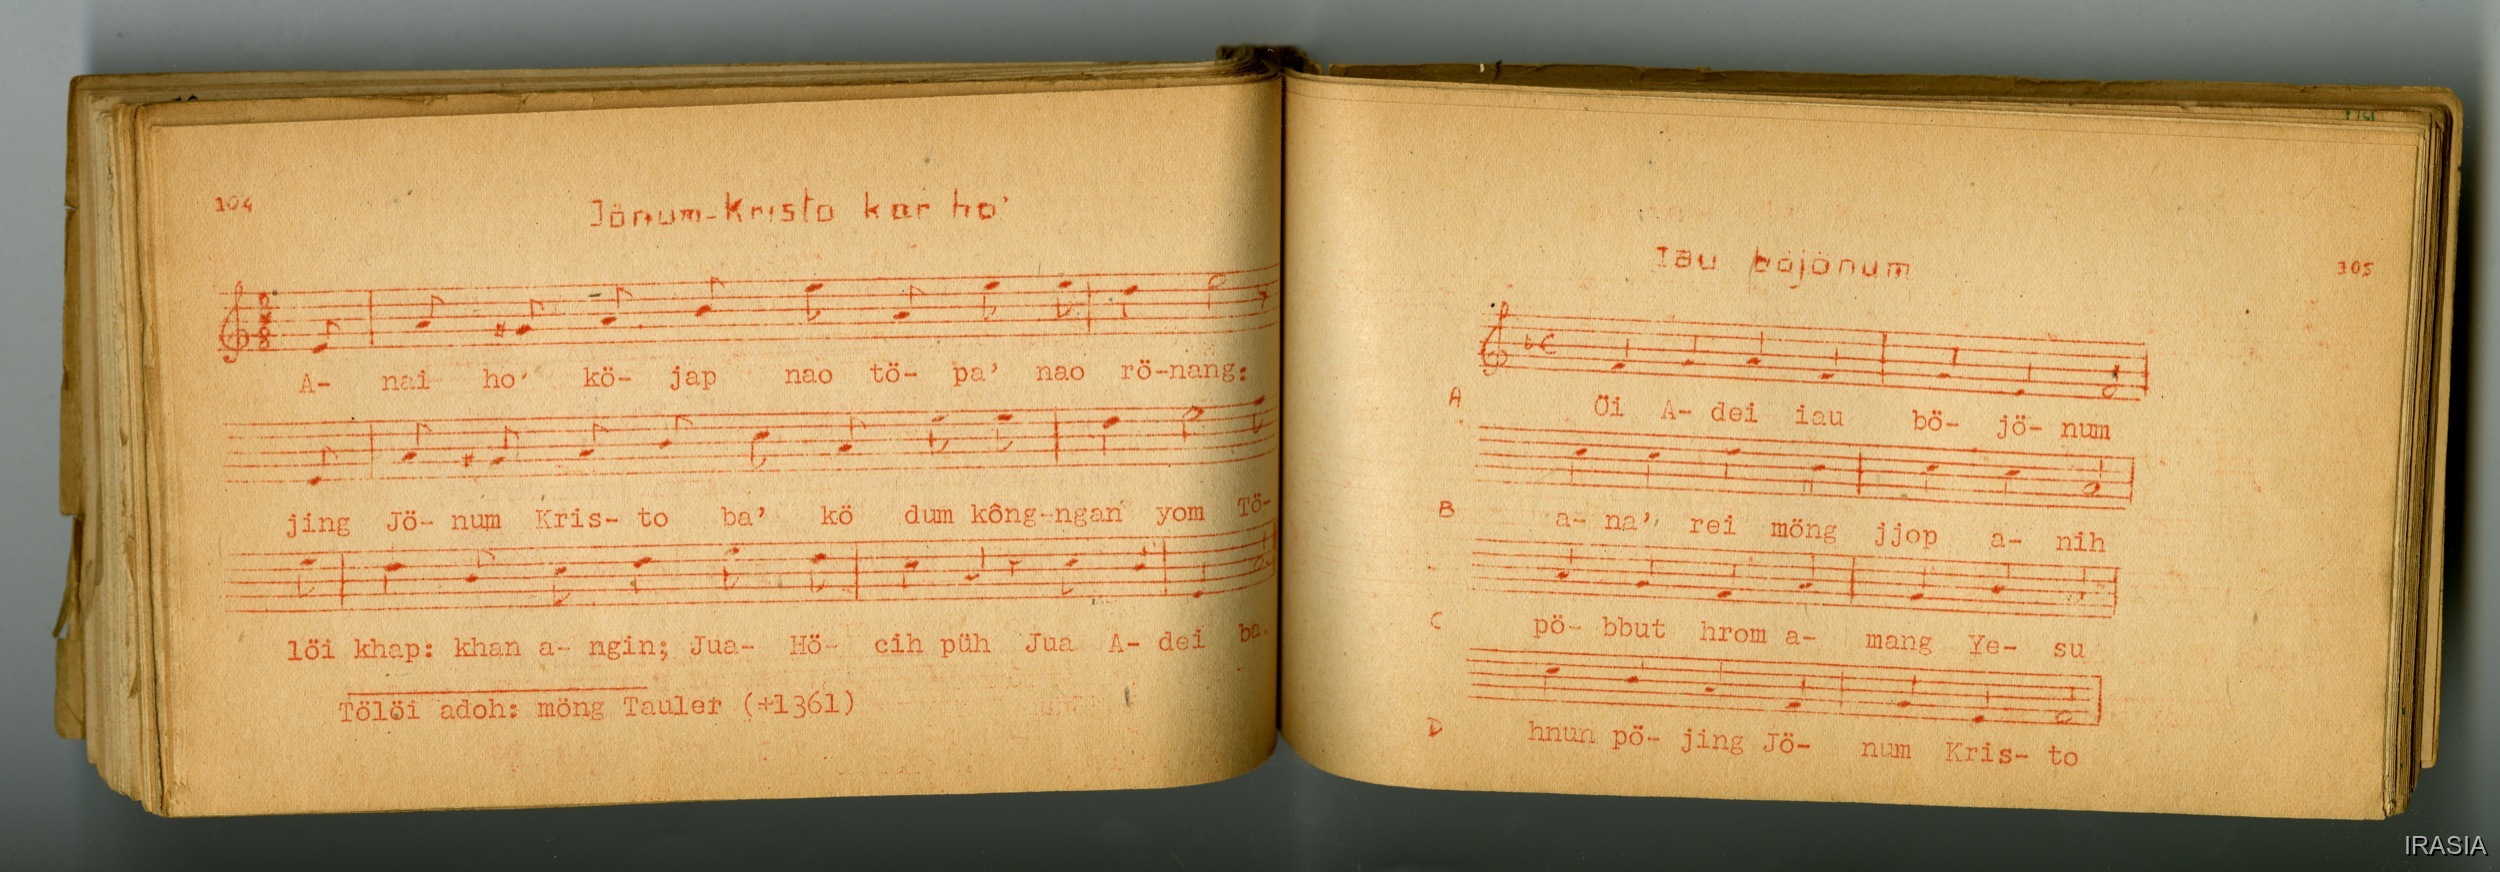 104
Jönum-Kristo kar ho'
A- nai ho' kö- jap nao tö- pa' nao rö-nang:
jing Jö- num Kris- to ba' kö dum kông-ngan yom Tö-
löi khap: khan a- ngin; Jua- Hö- cih püh Jua A- dei ba.
Tölöi adoh: möng Tauler (+1361)
Iau böjönum
105
A Öi A- dei iau bö- jö- num
B a- na', rei möng jjop a- nih
C pö- bbut hrom a- mang Ye- su
D hnun pö- jing Jö- num Kris- to
IRASIA